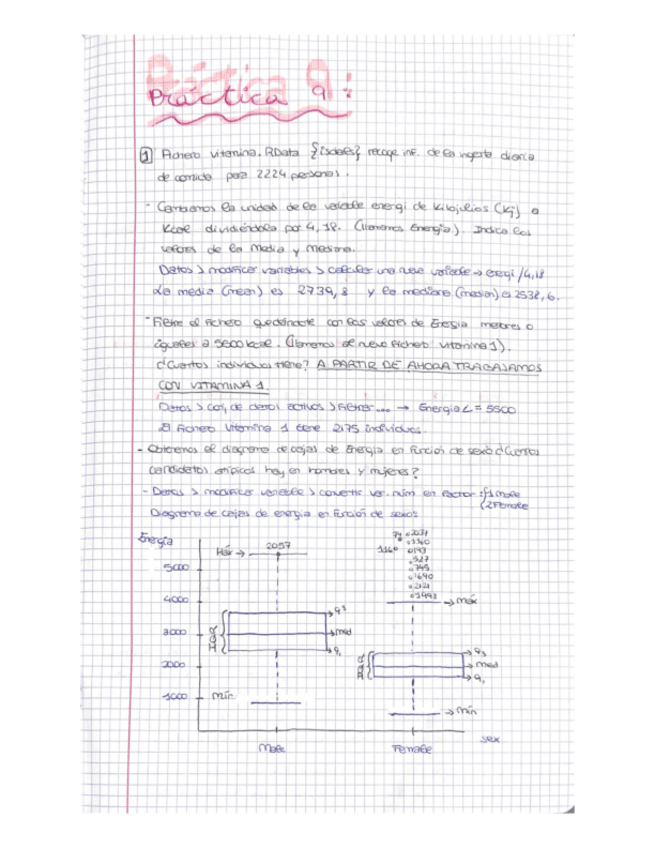 Práctica 9:
1 Fichero vitamina.RData {isdals} recoge inf. de la ingesta diaria
de comida para 2224 personas.
- Cambiamos la unidad de la variable energi de kilojulios (Kj) a
Kcal dividiéndola por 4,18. (llamamos Energía). Indica los
valores de la media y mediana.
Datos > modificar variables > calcular una nueva variable → energi/4,18
La media (mean) es 2739,8 y la mediana (median) es 2538,6.
- Filtra el fichero quedándote con los valores de Energía menores o
iguales a 5500 kcal. (llamamos al nuevo fichero vitamina 1).
¿Cuántos individuos tiene? A PARTIR DE AHORA TRABAJAMOS
CON VITAMINA 1.
Datos > conj. de datos activos > Filtrar... → Energia <= 5500
El fichero vitamina 1 tiene 2175 individuos.
- Obtenemos el diagrama de cajas de Energía en función de sexo ¿Cuántos
candidatos atípicos hay en hombres y mujeres?
- Datos > modificar variable > convertir var. núm en factor: 1 male
2 Female
Diagrama de cajas de energía en función de sexo:
Energía
Máx → 2057
74 2037
1160
5000
4000
3000
2000
1000
IQR
q3
med
q1
mín
máx
IQR
q3
med
q1
mín
Male
Female
sex